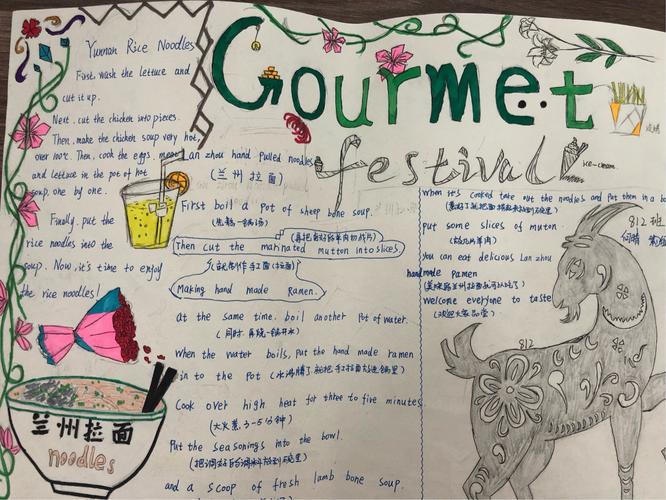 Gourmet
festival
ice-cream
Yunnan Rice Noodles
First, wash the lettuce and
cut it up.
Next, cut the chicken into pieces.
Then, make the chicken soup very hot,
over 100℃. Then, cook the eggs, meat
and lettuce in the pot of hot
soup, one by one.
Finally, put the
rice noodles into the
soup. Now, it's time to enjoy
the rice noodles!
兰州拉面
noodles
Lan zhou hand Pulled noodles
(兰州拉面)
First boil a Pot of sheep bone soup.
Then cut the marinated mutton into slices
Making hand made Ramen.
At the same time, boil another Pot of water.
When the water boils, put the hand made ramen
in to the Pot
Cook over high heat for three to five minutes
(大火煮3-5分钟)
Put the seasonings into the bowl.
and a scoop of fresh lamb bone soup.
When it's cooked take out the noodles and put them in a
put some slices of muton
you can eat delicious Lan zhou
hand made ramen
Welcome everyone to taste
(欢迎大家品尝)
812班
812